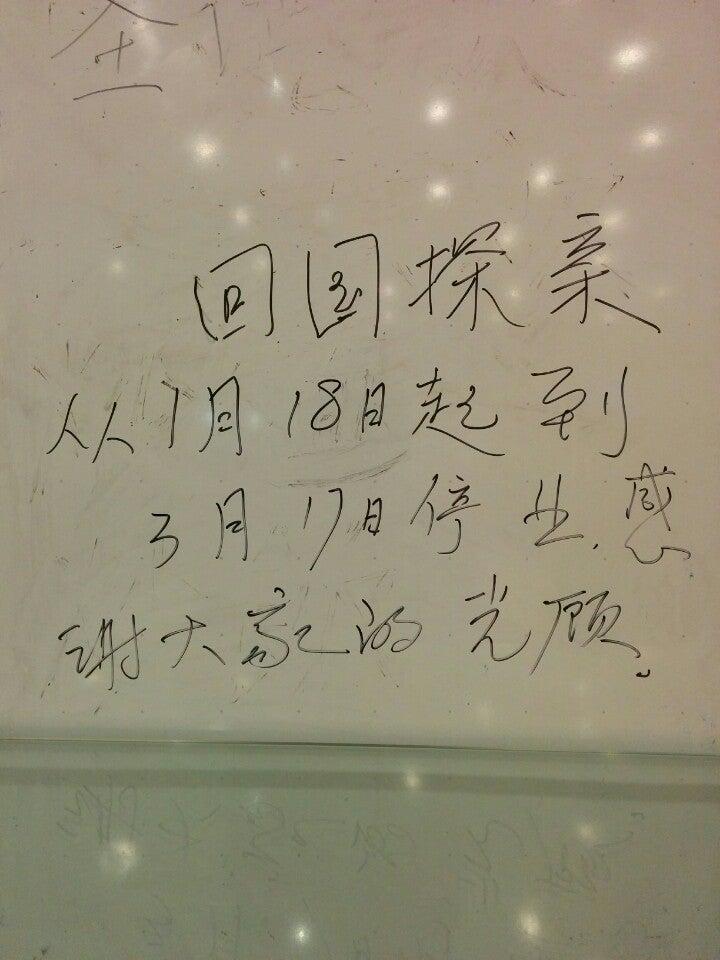 回国探亲
从1月18日起到
3月17日停业.感
谢大家的光顾。